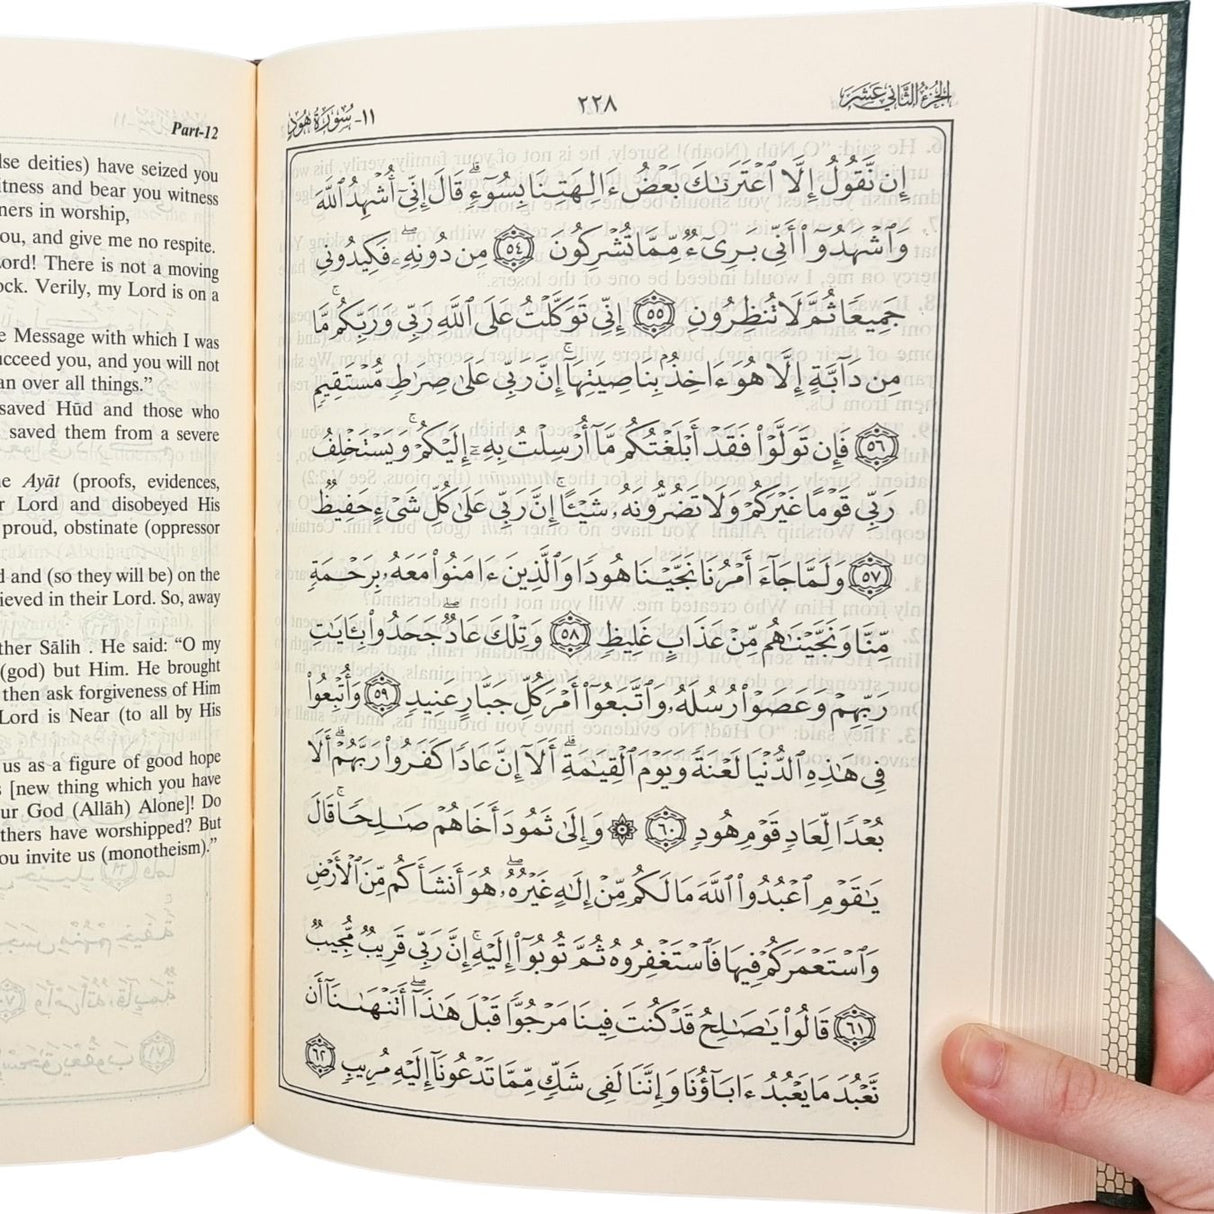 Part-12
lse deities) have seized you
itness and bear you witness
ners in worship,
ou, and give me no respite.
Lord! There is not a moving
ock. Verily, my Lord is on a
e Message with which I was
ucceed you, and you will not
an over all things.”
saved Hūd and those who
saved them from a severe
ne Ayāt (proofs, evidences,
r Lord and disobeyed His
proud, obstinate (oppressor
d and (so they will be) on the
ieved in their Lord. So, away
ther Sālih . He said: “O my
(god) but Him. He brought
then ask forgiveness of Him
Lord is Near (to all by His
us as a figure of good hope
s [new thing which you have
ur God (Allāh) Alone]! Do
thers have worshipped? But
ou invite us (monotheism).”
الجزء الثاني عشر
٢٢٨
١١- سورة هود
إِن نَّقُولُ إِلَّا ٱعْتَرَىٰكَ بَعْضُ ءَالِهَتِنَا بِسُوٓءٍ ۗ قَالَ إِنِّىٓ أُشْهِدُ ٱللَّهَ
وَٱشْهَدُوٓا۟ أَنِّى بَرِىٓءٌ مِّمَّا تُشْرِكُونَ ٥٤ مِن دُونِهِۦ ۖ فَكِيدُونِى
جَمِيعًا ثُمَّ لَا تُنظِرُونِ ٥٥ إِنِّى تَوَكَّلْتُ عَلَى ٱللَّهِ رَبِّى وَرَبِّكُم ۚ مَّا
مِن دَآبَّةٍ إِلَّا هُوَ ءَاخِذٌۢ بِنَاصِيَتِهَآ ۚ إِنَّ رَبِّى عَلَىٰ صِرَٰطٍ مُّسْتَقِيمٍ
٥٦ فَإِن تَوَلَّوْا۟ فَقَدْ أَبْلَغْتُكُم مَّآ أُرْسِلْتُ بِهِۦٓ إِلَيْكُمْ ۚ وَيَسْتَخْلِفُ
رَبِّى قَوْمًا غَيْرَكُمْ وَلَا تَضُرُّونَهُۥ شَيْـًٔا ۚ إِنَّ رَبِّى عَلَىٰ كُلِّ شَىْءٍ حَفِيظٌ
٥٧ وَلَمَّا جَآءَ أَمْرُنَا نَجَّيْنَا هُودًا وَٱلَّذِينَ ءَامَنُوا۟ مَعَهُۥ بِرَحْمَةٍ
مِّنَّا وَنَجَّيْنَٰهُم مِّنْ عَذَابٍ غَلِيظٍ ٥٨ وَتِلْكَ عَادٌ ۖ جَحَدُوا۟ بِـَٔايَٰتِ
رَبِّهِمْ وَعَصَوْا۟ رُسُلَهُۥ وَٱتَّبَعُوٓا۟ أَمْرَ كُلِّ جَبَّارٍ عَنِيدٍ ٥٩ وَأُتْبِعُوا۟
فِى هَٰذِهِ ٱلدُّنْيَا لَعْنَةً وَيَوْمَ ٱلْقِيَٰمَةِ ۗ أَلَآ إِنَّ عَادًا كَفَرُوا۟ رَبَّهُمْ ۗ أَلَا
بُعْدًا لِّعَادٍ قَوْمِ هُودٍ ٦٠ ۞ وَإِلَىٰ ثَمُودَ أَخَاهُمْ صَٰلِحًا ۚ قَالَ
يَٰقَوْمِ ٱعْبُدُوا۟ ٱللَّهَ مَا لَكُم مِّنْ إِلَٰهٍ غَيْرُهُۥ ۖ هُوَ أَنشَأَكُم مِّنَ ٱلْأَرْضِ
وَٱسْتَعْمَرَكُمْ فِيهَا فَٱسْتَغْفِرُوهُ ثُمَّ تُوبُوٓا۟ إِلَيْهِ ۚ إِنَّ رَبِّى قَرِيبٌ مُّجِيبٌ
٦١ قَالُوا۟ يَٰصَٰلِحُ قَدْ كُنتَ فِينَا مَرْجُوًّا قَبْلَ هَٰذَآ ۖ أَتَنْهَىٰنَآ أَن
نَّعْبُدَ مَا يَعْبُدُ ءَابَآؤُنَا وَإِنَّنَا لَفِى شَكٍّ مِّمَّا تَدْعُونَآ إِلَيْهِ مُرِيبٍ ٦٢